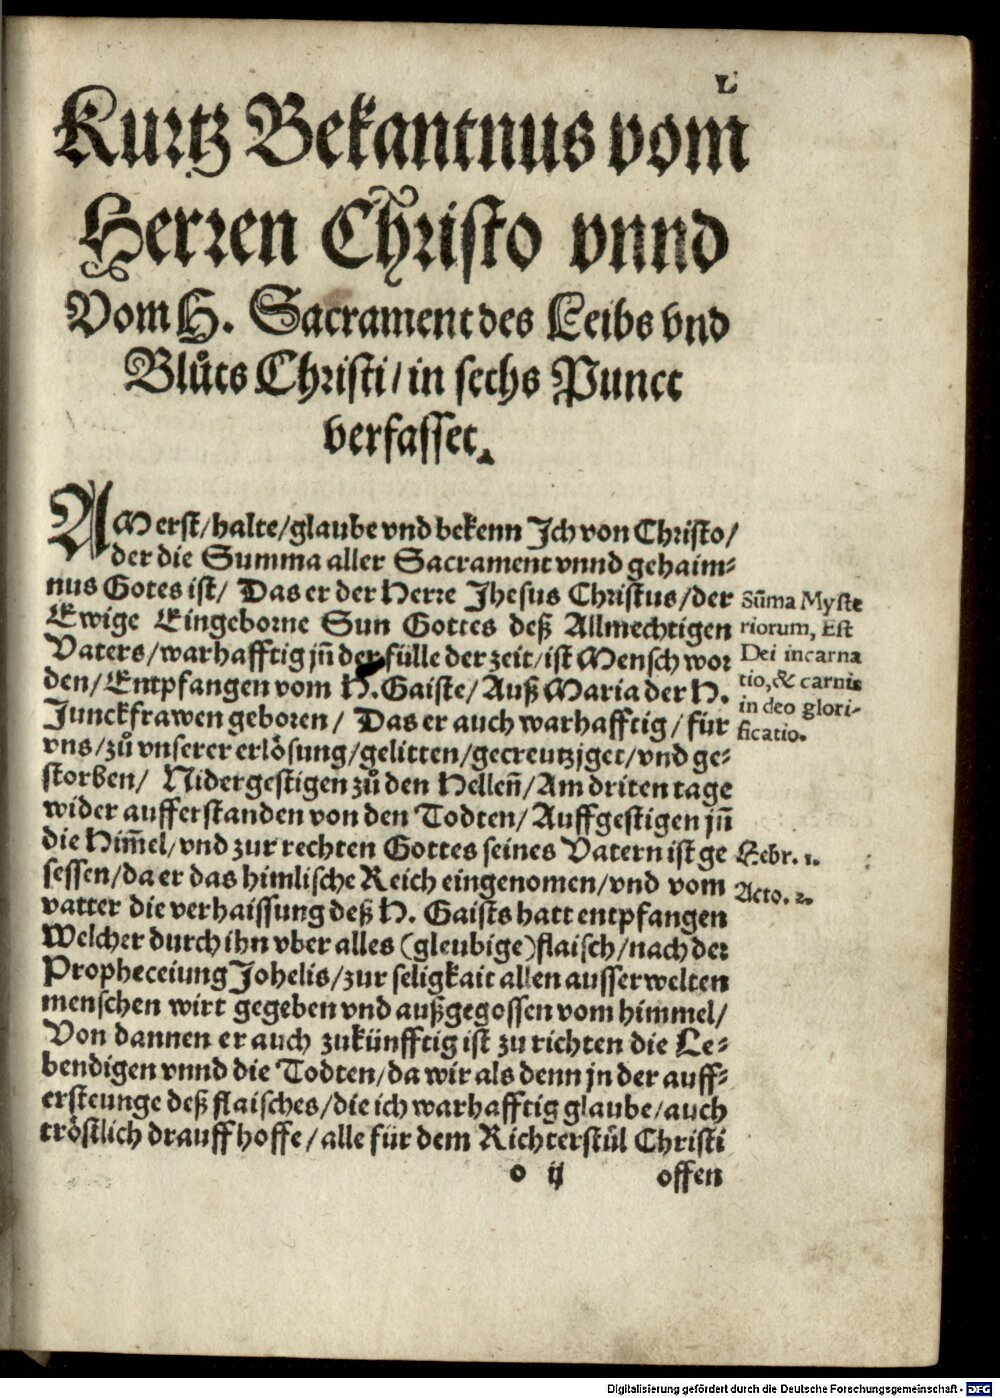 L
Kurtz Bekantnus vom
Herren Christo vnnd
Vom H. Sacrament des Leibs vnd
Bluͦts Christi/ in sechs Punct
verfasset.
AM erst/ halte/ glaube vnd bekenn Ich von Christo/
der die Summa aller Sacrament vnnd gehaim-
nus Gotes ist/ Das er der Herre Jhesus Christus/ der
Ewige Eingeborne Sun Gottes deß Allmechtigen
Vaters/ warhafftig jn̄ der fülle der zeit/ ist Mensch wor
den/ Entpfangen vom H. Gaiste/ Auß Maria der H.
Junckfrawen geboren/ Das er auch warhafftig/ für
vns/ zuͦ vnserer erlösung/ gelitten/ gecreutzjget/ vnd ge-
storben/ Nidergestigen zuͦ den Hellen̄/ Am driten tage
wider aufferstanden von den Todten/ Auffgestigen jn̄
die Him̄el/ vnd zur rechten Gottes seines Vatern ist ge
sessen/ da er das himlische Reich eingenomen/ vnd vom
vatter die verhaissung deß H. Gaists hatt entpfangen
Welcher durch ihn vber alles (gleubige) flaisch/ nach der
Propheceiung Johelis/ zur seligkait allen ausserwelten
menschen wirt gegeben vnd außgegossen vom himmel/
Von dannen er auch zukünfftig ist zu richten die Le-
bendigen vnnd die Todten/ da wir als denn jn der auff-
ersteunge deß flaisches/ die ich warhafftig glaube/ auch
tröstlich drauff hoffe/ alle für dem Richterstül Christi
o ij offen
Sūma Myste
riorum, Est
Dei incarna
tio, & carnis
in deo glori-
ficatio.
Hebr. 1.
Acto. 2.
Digitalisierung gefördert durch die Deutsche Forschungsgemeinschaft - DFG